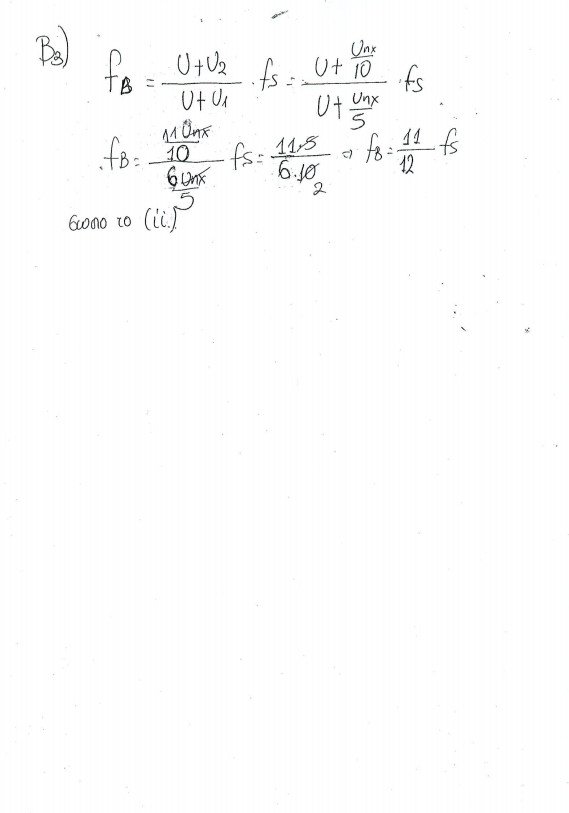 B3) fB = (U+U2)/(U+U1) · fs = (U+Uηχ/10)/(U+Uηχ/5) · fs
fB = (11Uηχ/10)/(6Uηχ/5) fs = 11·5/6·10 2 ⇒ fB = 11/12 fs
σωστο το (ii.)